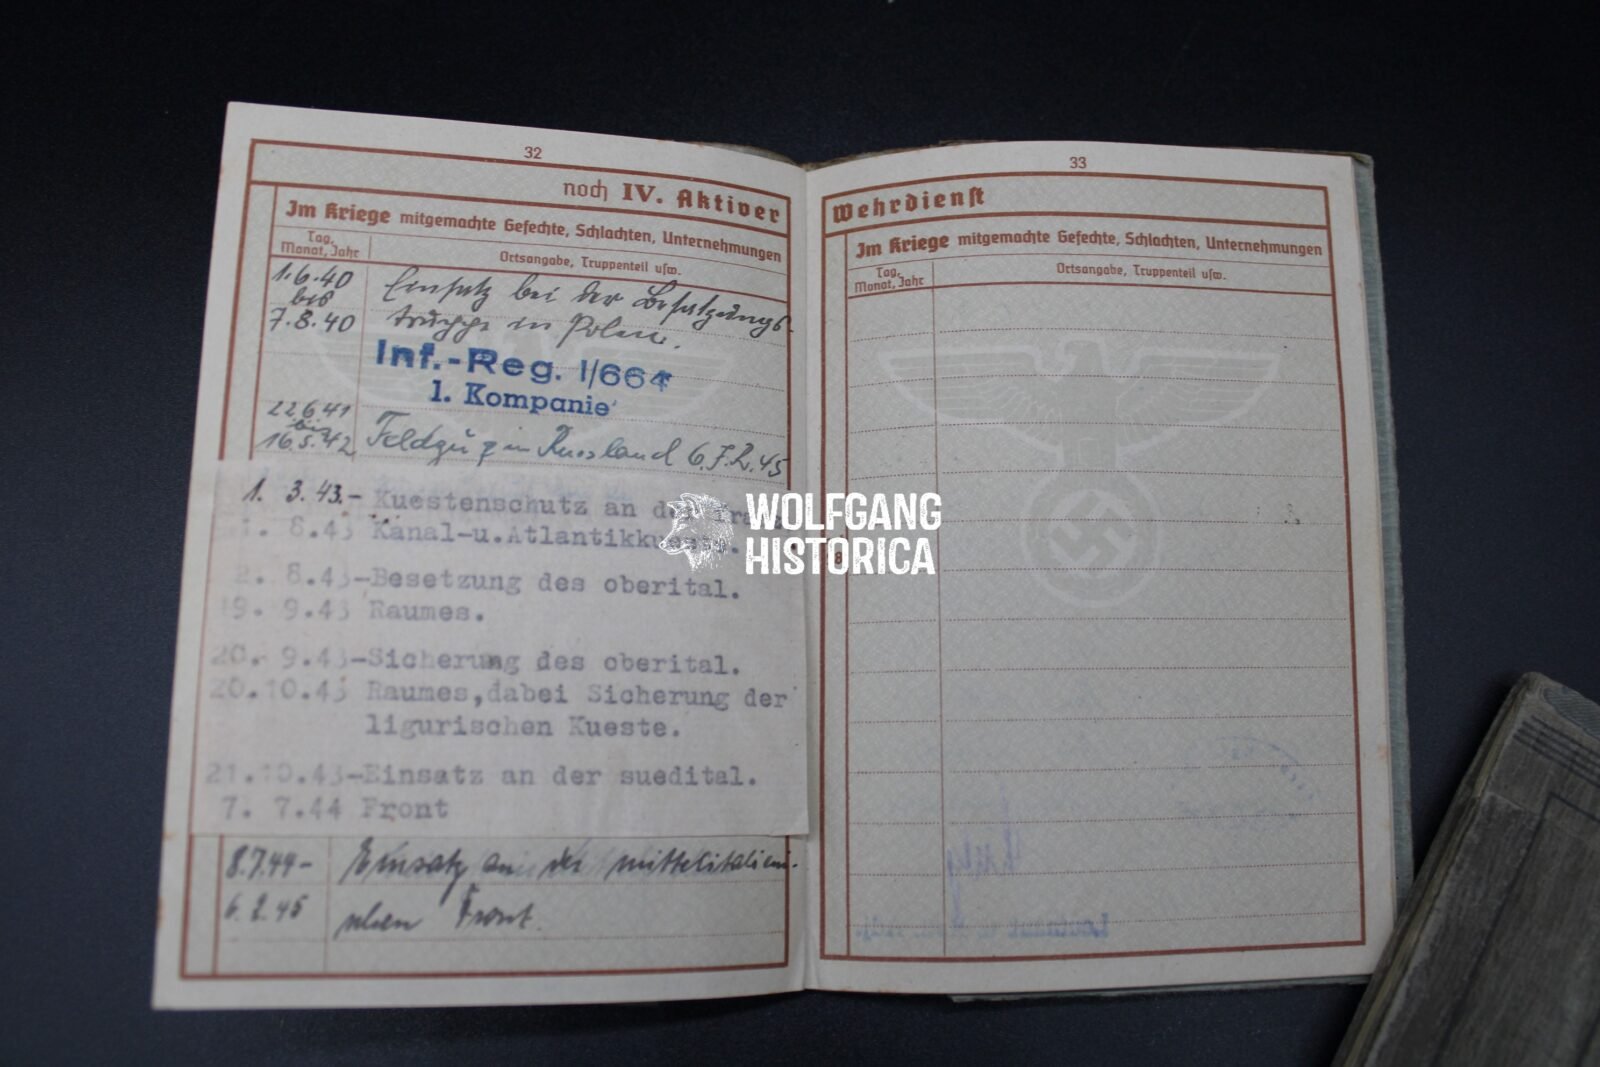 32
noch IV. Aktiver
Im Kriege mitgemachte Gefechte, Schlachten, Unternehmungen
Tag, Monat, Jahr
Ortsangabe, Truppenteil usw.
1.6.40 Einsatz bei der Besatzungs-
bis
7.8.40 truppe in Polen.
Inf.-Reg. I/664
1. Kompanie
22.6.41
bis
16.5.42 Feldzug in Russland
1. 3.43.- Kuestenschutz an der
8.43 Kanal-u.Atlantikkueste.
2. 8.43-Besetzung des oberital.
19. 9.43 Raumes.
20. 9.43-Sicherung des oberital.
20.10.43 Raumes,dabei Sicherung der
ligurischen Kueste.
21.10.43-Einsatz an der suedital.
7. 7.44 Front
8.7.44- Einsatz an der mittelitalieni-
6.2.45 schen Front.
33
Wehrdienst
Im Kriege mitgemachte Gefechte, Schlachten, Unternehmungen
Tag, Monat, Jahr
Ortsangabe, Truppenteil usw.
WOLFGANG
HISTORICA